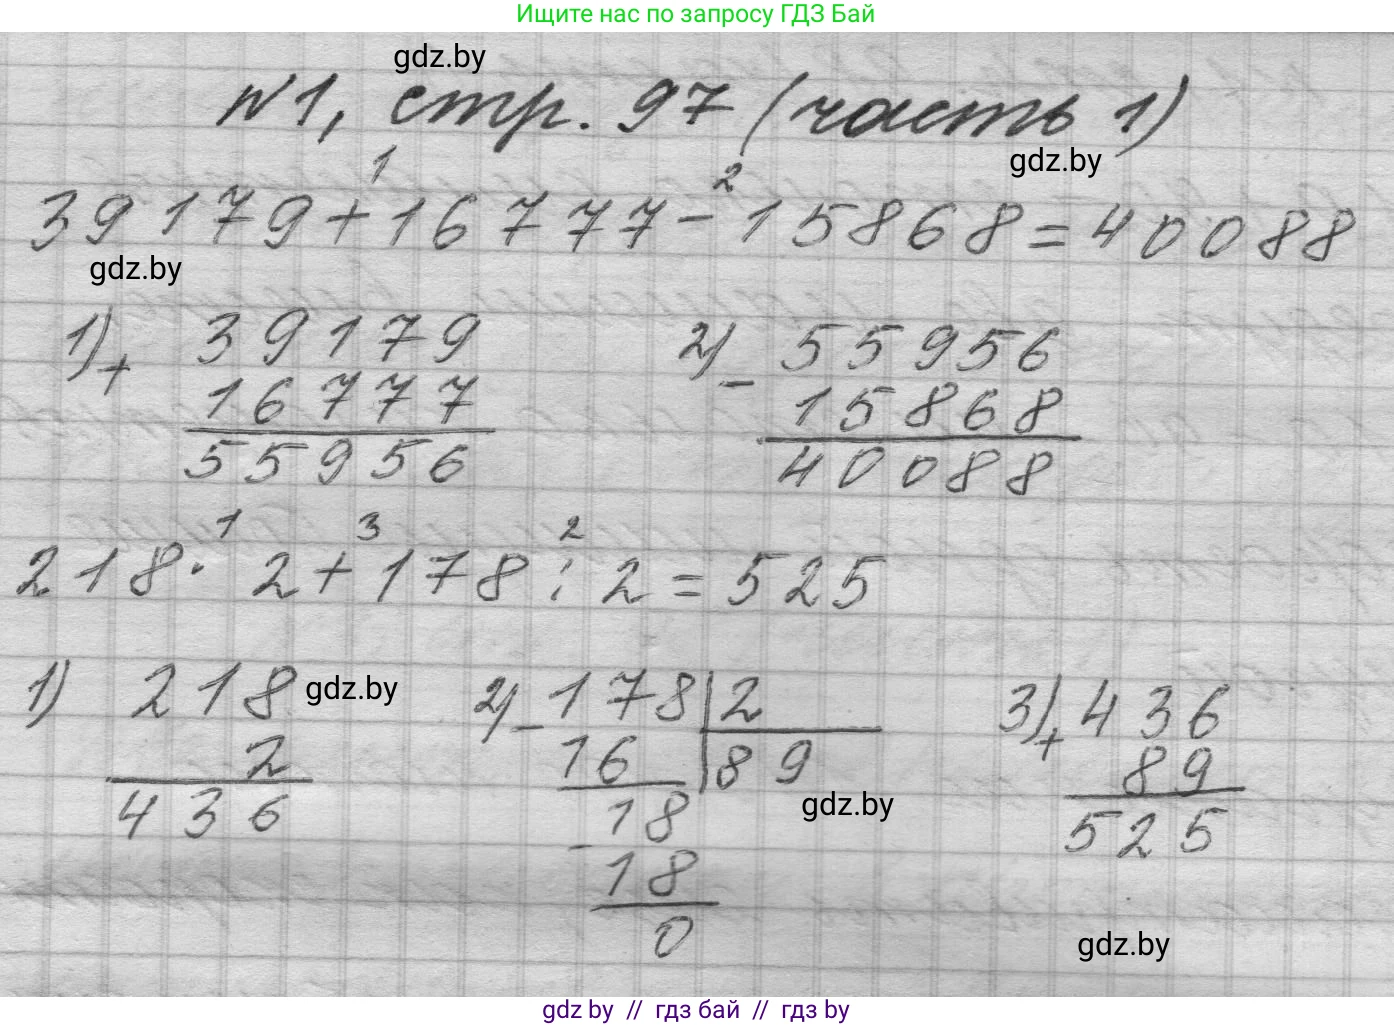 Ищите нас по запросу ГДЗ Бай
gdz.by
№1, стр. 97 (часть 1)
gdz.by
1 2
39179+16777-15868=40088
gdz.by
1) + 39179
16777
55956
2) - 55956
15868
40088
1 3 2
218· 2+178:2=525
1) 218
2
436
gdz.by
2) - 178 | 2
16 | 89
- 18
18
0
gdz.by
3) + 436
89
525
gdz.by
gdz by // гдз бай // гдз by